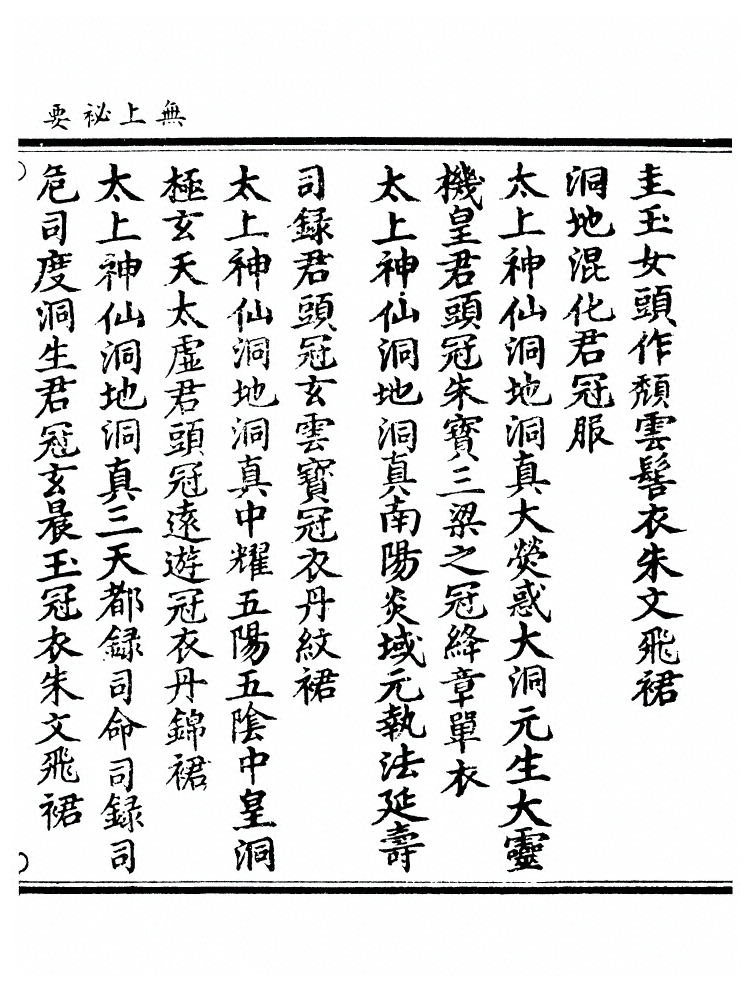 無上祕要
圭玉女頭作頹雲髻衣朱文飛裙
洞地混化君冠服
太上神仙洞地洞真大熒惑大洞元生大靈
機皇君頭冠朱寶三梁之冠絳章單衣
太上神仙洞地洞真南陽炎域元執法延壽
司錄君頭冠玄雲寶冠衣丹紋裙
太上神仙洞地洞真中耀五陽五陰中皇洞
極玄天太虛君頭冠遠遊冠衣丹錦裙
太上神仙洞地洞真三天都録司命司録司
危司度洞生君冠玄晨玉冠衣朱文飛裙